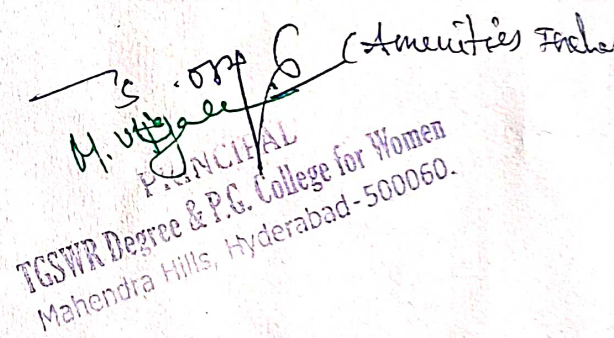 (Amenities
M.
PRINCIPAL
TGSWR Degree & P.G. College for Women
Mahendra Hills, Hyderabad-500060.